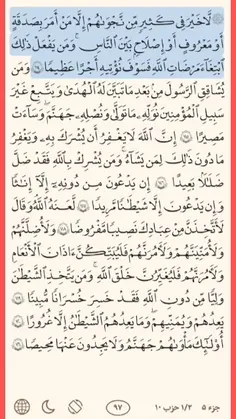 ۞ لَّا خَيْرَ فِي كَثِيرٍ مِّن نَّجْوَىٰهُمْ إِلَّا مَنْ أَمَرَ بِصَدَقَةٍ
أَوْ مَعْرُوفٍ أَوْ إِصْلَٰحٍۭ بَيْنَ ٱلنَّاسِ ۚ وَمَن يَفْعَلْ ذَٰلِكَ
ٱبْتِغَآءَ مَرْضَاتِ ٱللَّهِ فَسَوْفَ نُؤْتِيهِ أَجْرًا عَظِيمًا ١١٤ وَمَن
يُشَاقِقِ ٱلرَّسُولَ مِنۢ بَعْدِ مَا تَبَيَّنَ لَهُ ٱلْهُدَىٰ وَيَتَّبِعْ غَيْرَ
سَبِيلِ ٱلْمُؤْمِنِينَ نُوَلِّهِۦ مَا تَوَلَّىٰ وَنُصْلِهِۦ جَهَنَّمَ ۖ وَسَآءَتْ
مَصِيرًا ١١٥ إِنَّ ٱللَّهَ لَا يَغْفِرُ أَن يُشْرَكَ بِهِۦ وَيَغْفِرُ
مَا دُونَ ذَٰلِكَ لِمَن يَشَآءُ ۚ وَمَن يُشْرِكْ بِٱللَّهِ فَقَدْ ضَلَّ
ضَلَٰلًۢا بَعِيدًا ١١٦ إِن يَدْعُونَ مِن دُونِهِۦٓ إِلَّآ إِنَٰثًا
وَإِن يَدْعُونَ إِلَّا شَيْطَٰنًا مَّرِيدًا ١١٧ لَّعَنَهُ ٱللَّهُ ۘ وَقَالَ
لَأَتَّخِذَنَّ مِنْ عِبَادِكَ نَصِيبًا مَّفْرُوضًا ١١٨ وَلَأُضِلَّنَّهُمْ
وَلَأُمَنِّيَنَّهُمْ وَلَءَامُرَنَّهُمْ فَلَيُبَتِّكُنَّ ءَاذَانَ ٱلْأَنْعَٰمِ
وَلَءَامُرَنَّهُمْ فَلَيُغَيِّرُنَّ خَلْقَ ٱللَّهِ ۚ وَمَن يَتَّخِذِ ٱلشَّيْطَٰنَ
وَلِيًّا مِّن دُونِ ٱللَّهِ فَقَدْ خَسِرَ خُسْرَانًا مُّبِينًا ١١٩
يَعِدُهُمْ وَيُمَنِّيهِمْ ۖ وَمَا يَعِدُهُمُ ٱلشَّيْطَٰنُ إِلَّا غُرُورًا ١٢٠
أُو۟لَٰٓئِكَ مَأْوَىٰهُمْ جَهَنَّمُ وَلَا يَجِدُونَ عَنْهَا مَحِيصًا ١٢١
جزء ۵ ۱/۲ حزب ۱۰ ۹۷